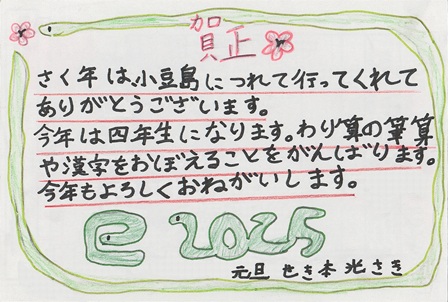 賀正
さく年は、小豆島につれて行ってくれて
ありがとうございます。
今年は四年生になります。わり算の筆算
や漢字をおぼえることをがんばります。
今年もよろしくおねがいします。
巳 2025
元旦 せき本 光さき